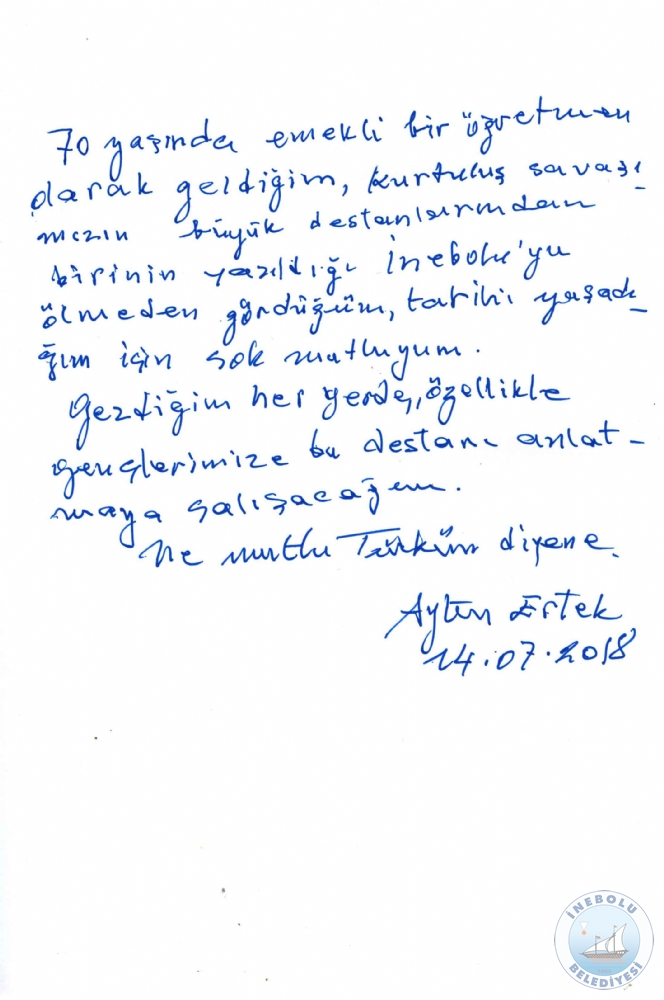 70 yaşında emekli bir öğretmen
olarak geldiğim, kurtuluş savaşı_
mızın büyük destanlarından
birinin yazıldığı İnebolu'yu
ölmeden gördüğüm, tarihi yaşadı_
ğım için çok mutluyum.
Gezdiğim her yerde, özellikle
gençlerimize bu destanı anlat-
maya çalışacağım.
Ne mutlu Türküm diyene.
Aytün Ertek
14.07.2018
İNEBOLU
BELEDİYESİ